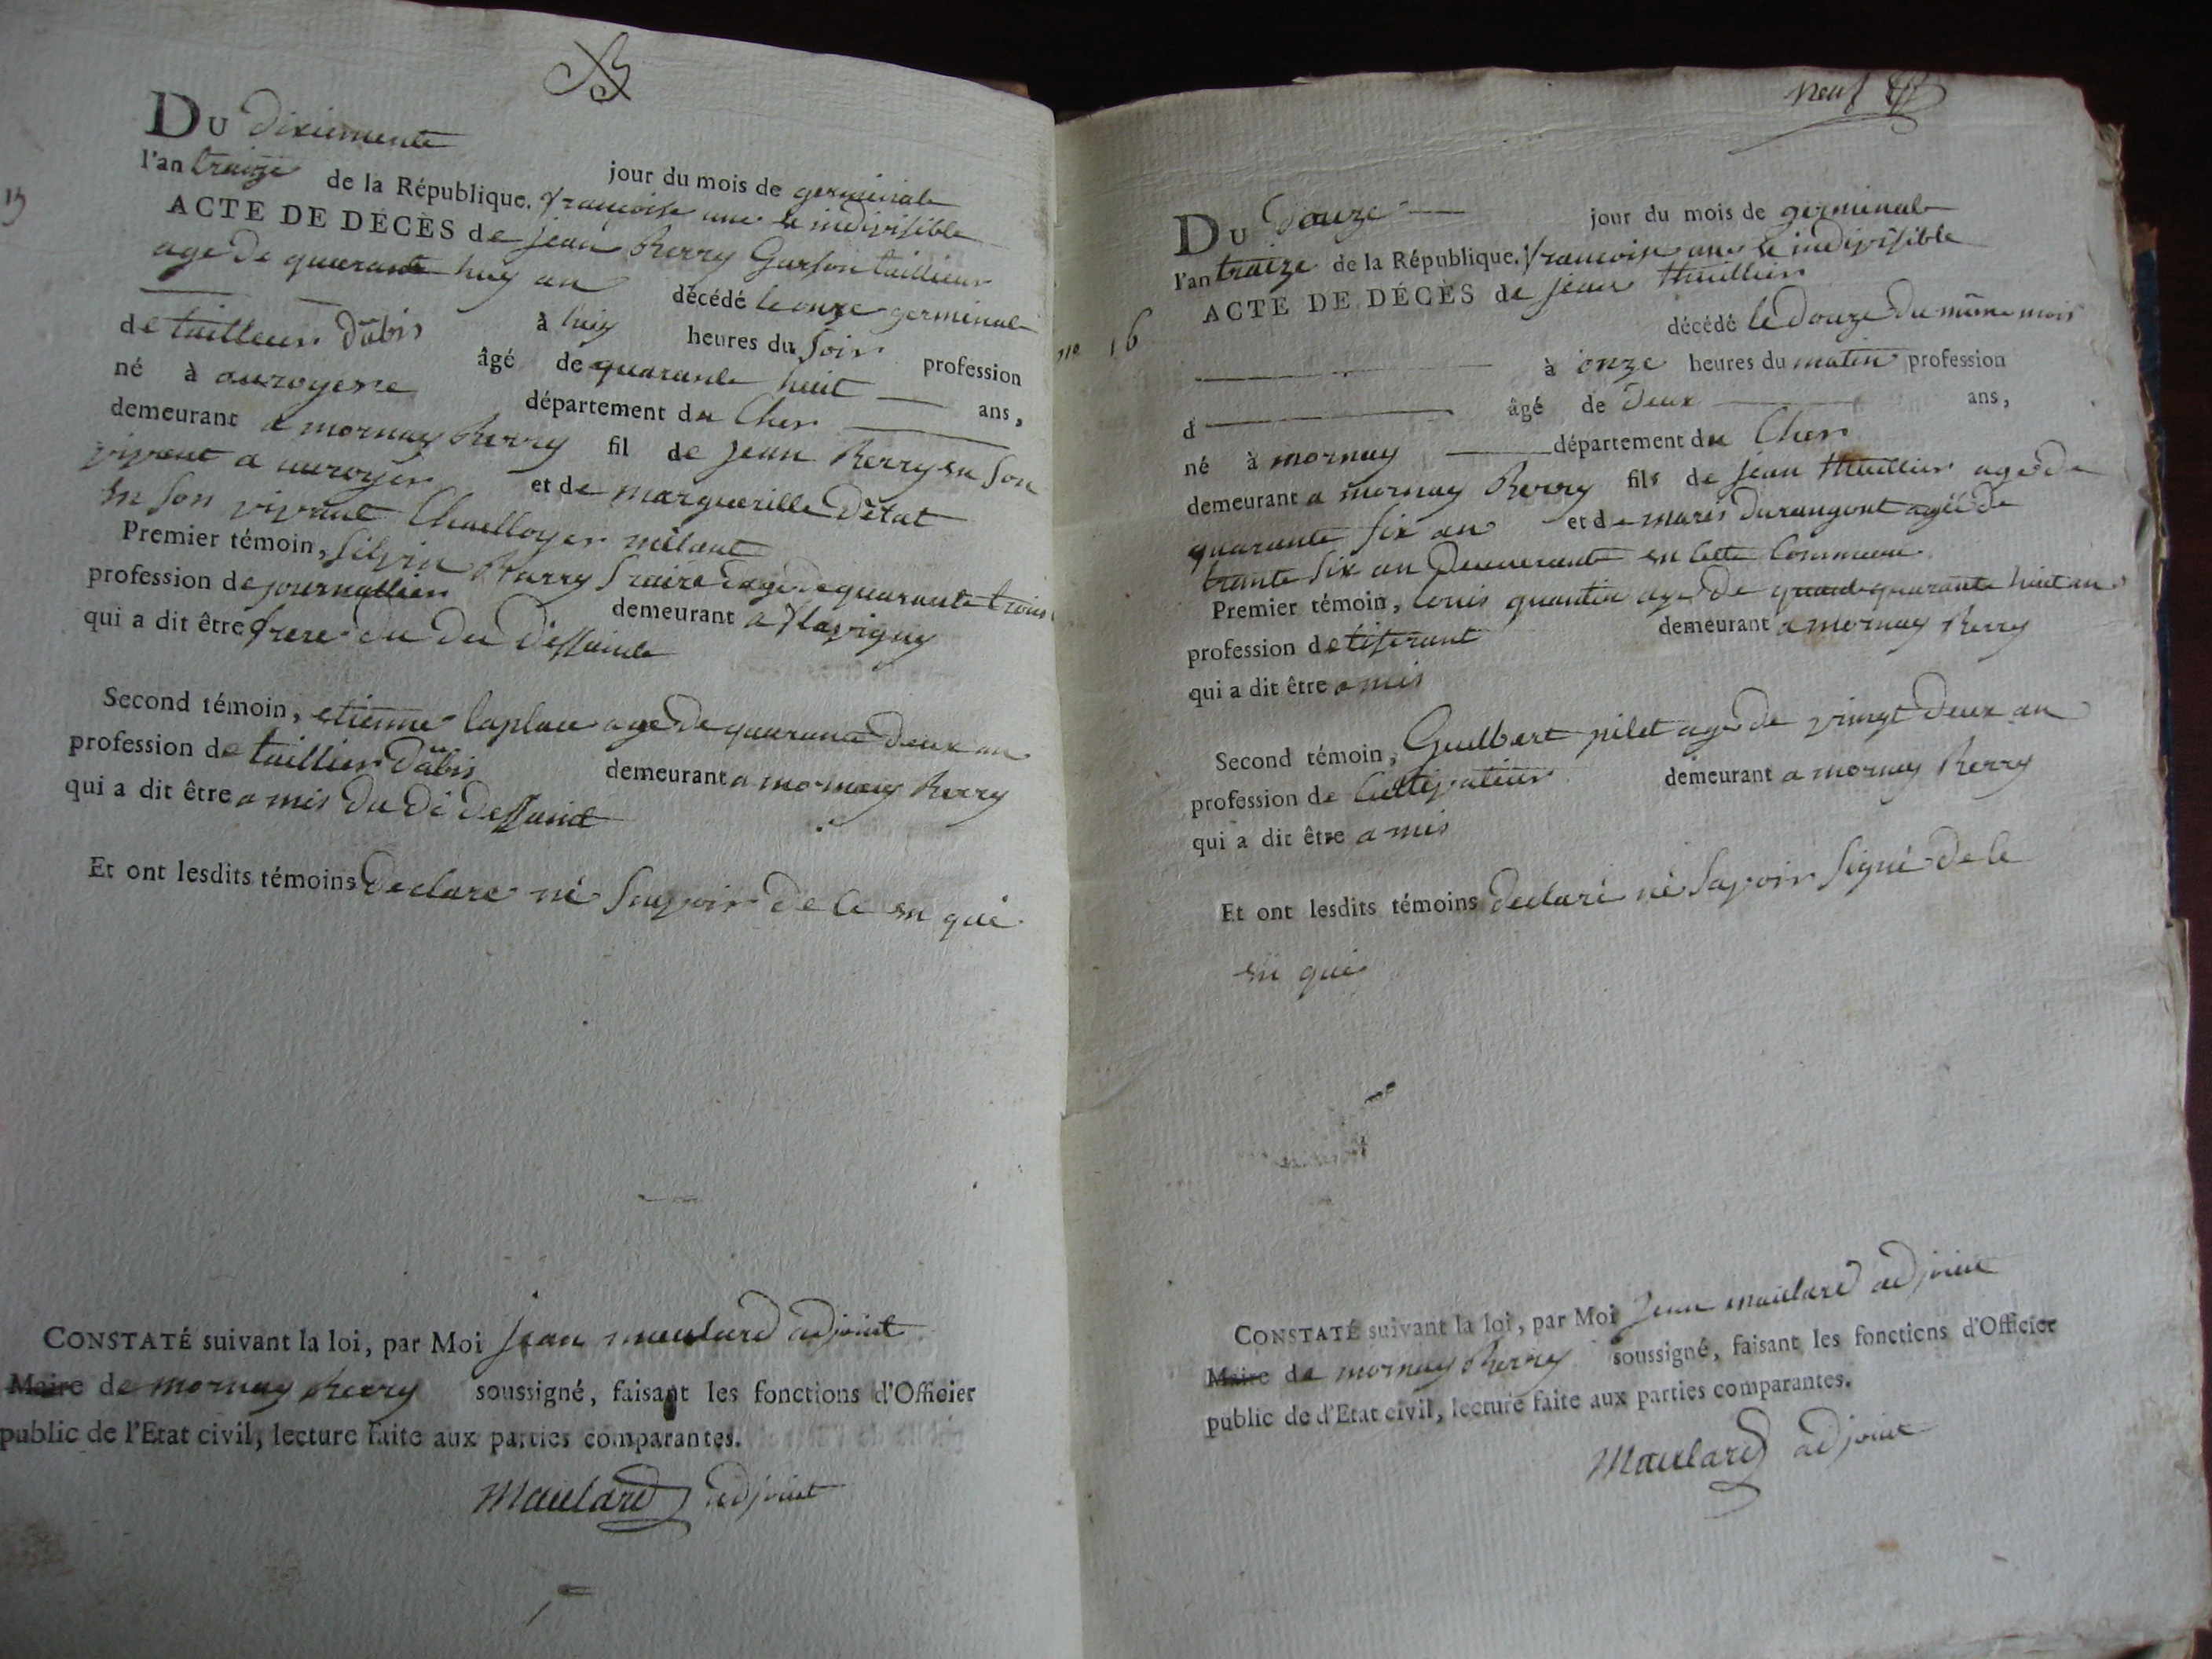 15
DU dixiemente jour du mois de germinal
l'an traize de la République. francoise une e indivisible
ACTE DE DÉCÈS de jean Berry Garson taillieur
age de quarante huy an décédé le onze germinal
à huy heures du soir profession
de tailleur dabis âgé de quarante huit ans,
né à auroyere département du Cher
demeurant a mornay Berry fil de jean Berry en son
vivent a auroyer et de marguerille Détat
en son vivant
Premier témoin, silvin Barry fraire age de quarante trois
profession de journallier demeurant a flavigny
qui a dit être frere du du deffunle
Second témoin, etienne laplace age de quarante deux an
profession de taillier dabis demeurant a mornay Berry
qui a dit être a mis du di deffunt
Et ont lesdits témoins declare né savoir de ce en qué
CONSTATÉ suivant la loi, par Moi jean maulard adjoint
Maire de mornay Berry soussigné, faisant les fonctions d'Officier
public de l'Etat civil, lecture faite aux parties comparantes.
Maulard adjoint
neuf
no 16
DU douze jour du mois de germinal
l'an traize de la République. francoise une e indivisible
ACTE DE DÉCÈS de jean thuillier
décédé le douze du même mois
à onze heures du matin profession
d âgé de deux ans,
né à mornay département du Cher
demeurant a mornay Berry fils de jean thuillier age de
quarante six an et de marie durangont agée de
trante six an demeurant en cette commune
Premier témoin, louis quantin age de quarante huit an
profession de tiserant demeurant a mornay Berry
qui a dit être a mis
Second témoin, Guilbert pilet age de vingt deux an
profession de cultivateur demeurant a mornay Berry
qui a dit être a mis
Et ont lesdits témoins declaré né savoir signé de ce
en qué
CONSTATÉ suivant la loi, par Moi jean maulard adjoint
Maire de mornay Berry soussigné, faisant les fonctions d'Officier
public de d'Etat civil, lecture faite aux parties comparantes.
Maulard adjoint